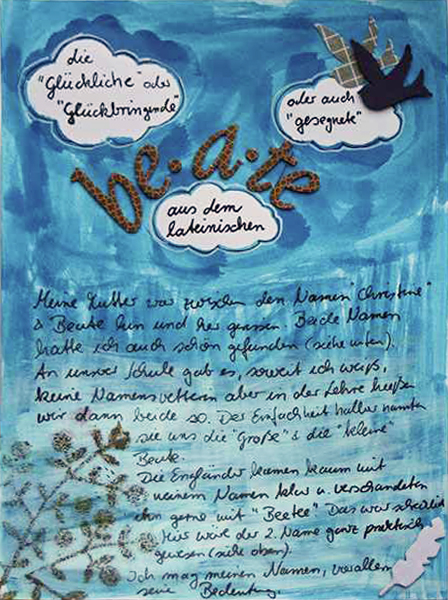 die
"Glückliche" oder
"Glückbringende"
oder auch
"gesegnete"
be·a·te
aus dem
lateinischen
Meine Mutter war zwischen den Namen "Christine"
& Beate hin und her gerissen. Beide Namen
hätte ich auch schön gefunden (siehe unten).
An unserer Schule gab es, soweit ich weiß,
keine Namensvettern aber in der Lehre hießen
wir dann beide so. Der Einfachheit halber nannten
sie uns die "Große" & die "kleine"
Beate.
Die Engländer kamen kaum mit
meinem Namen klar u. verschandelten
ihn gerne mit "Beetee". Das war scheußlich
Hier wäre der 2. Name ganz praktisch
gewesen (siehe oben).
Ich mag meinen Namen, vorallem
seine Bedeutung.